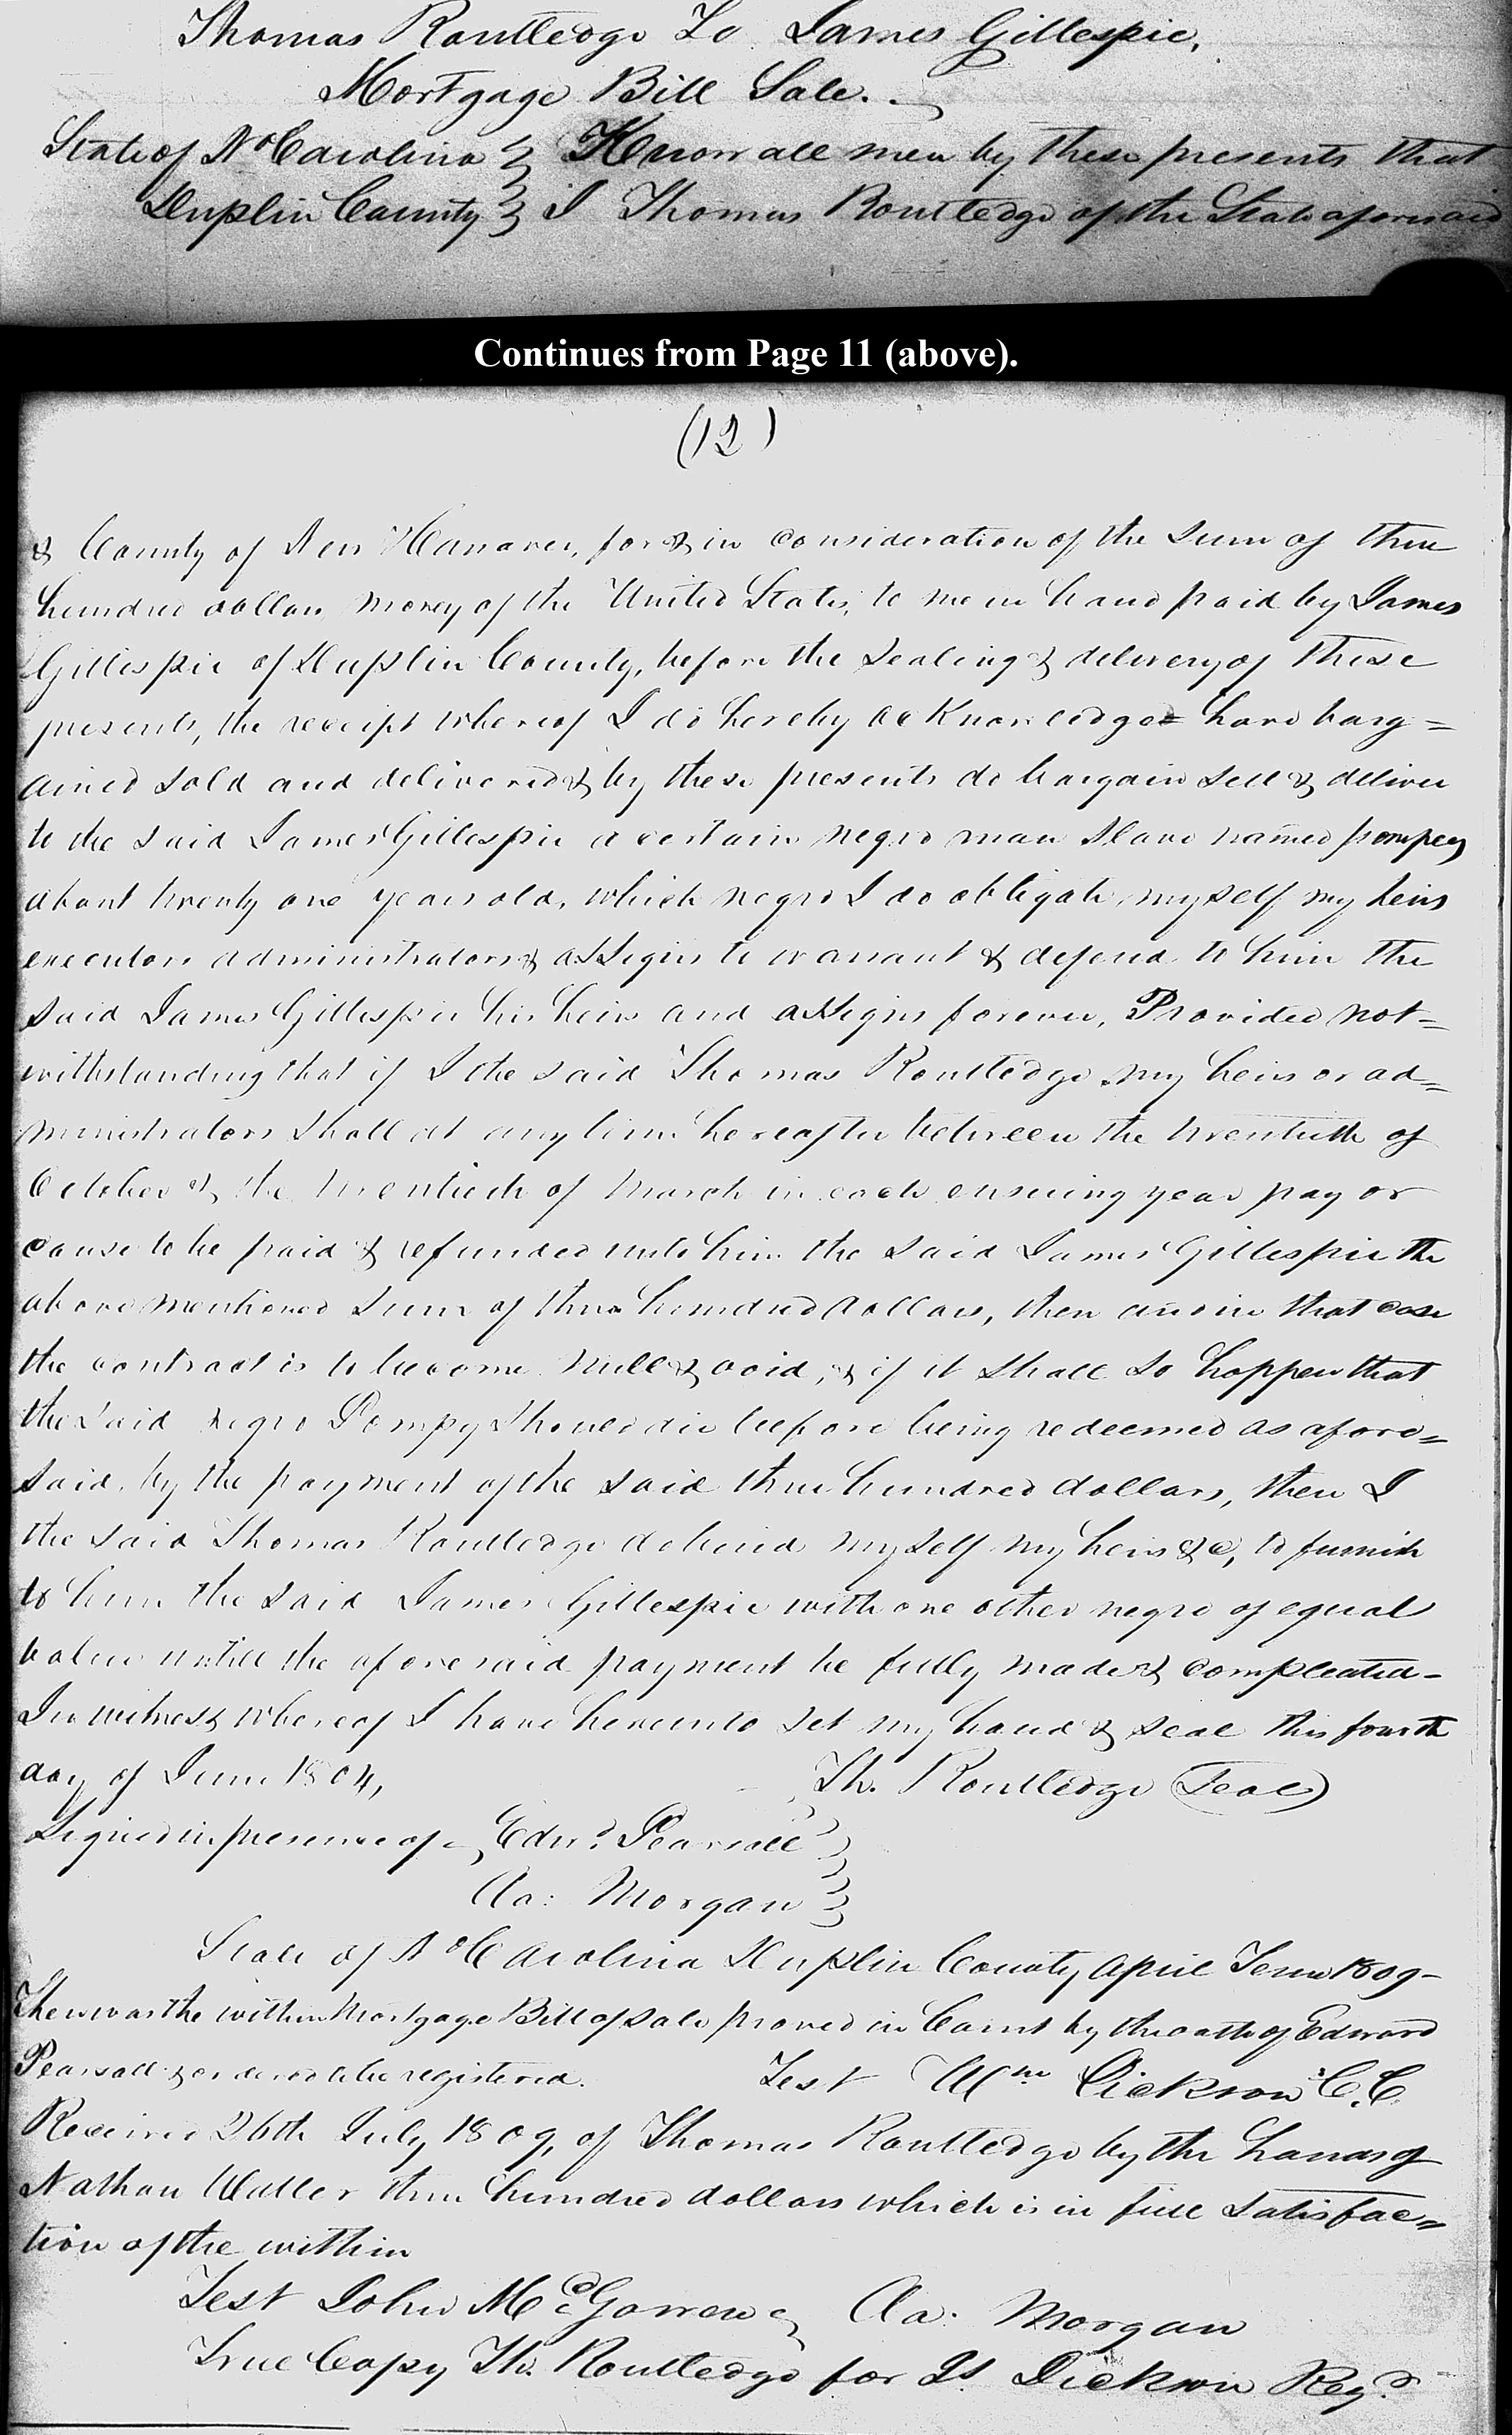 Thomas Routledge To James Gillespie,
Mortgage Bill Sale.
State of No Carolina } Know all men by these presents that
Duplin County } I Thomas Routledge of the State aforesaid
Continues from Page 11 (above).
(12)
& County of New Hanover, for & in consideration of the sum of three
hundred dollars money of the United States, to me in hand paid by James
Gillespie of Duplin County, before the sealing & delivery of these
presents, the receipt whereof I do hereby acknowledge have barg=
ained sold and delivered & by these presents do bargain sell & deliver
to the said James Gillespie a certain negro man slave named pompey
about twenty one years old, which negro I do obligate myself my heirs
executors administrators & assigns to warrant & defend to him the
said James Gillespie his heirs and assigns forever, Provided not=
withstanding that if I the said Thomas Routledge my heirs or ad=
ministrators shall at any time hereafter between the twentieth of
October & the twentieth of March in each ensuing year pay or
cause to be paid & refunded unto him the said James Gillespie the
above mentioned sum of three hundred dollars, then and in that case
the contract is to become null & void, & if it shall so happen that
the said negro Pompy should die before being redeemed as afore=
said, by the payment of the said three hundred dollars, then I
the said Thomas Routledge do bind myself my heirs &c, to furnish
to him the said James Gillespie with one other negro of equal
value untill the aforesaid payment be fully made & compleated-
In witness whereof I have hereunto set my hand & seal this fourth
day of June 1804, Th. Routledge (Seal)
Signed in presence of - Edwd. Pearsall }
Aa: Morgan }
State of No Carolina Duplin County April Term 1809-
Then was the within Mortgage Bill of sale proved in Court by the oath of Edward
Pearsall & ordered to be registered. Test Wm Dickson C.C.
Received 26th July 1809, of Thomas Routledge by the hands of
Nathan Waller three hundred dollars which is in full satisfac=
tion of the within
Test John McGowen Aa. Morgan
True Copy Th. Routledge for Js. Dickson Regr.